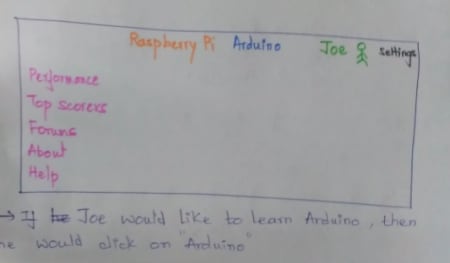 Raspberry Pi Arduino Joe settings
Performance
Top scorers
Forums
About
Help
→ If Joe would like to learn Arduino, then
he would click on "Arduino"